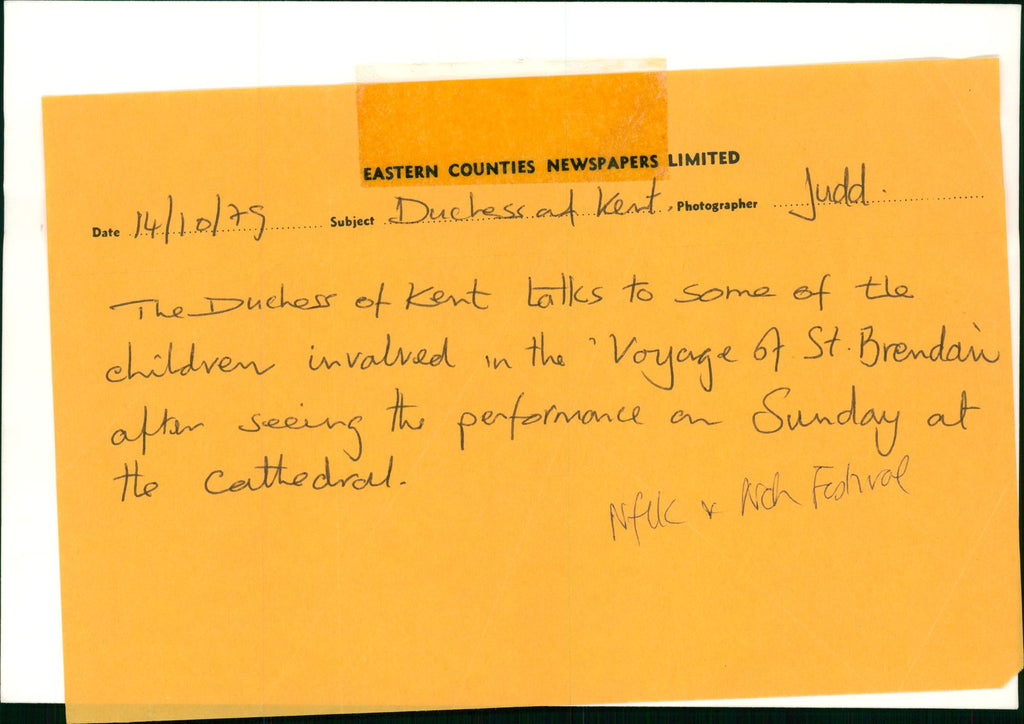 EASTERN COUNTIES NEWSPAPERS LIMITED
Date 14/10/79 Subject Duchess of Kent. Photographer Judd.
The Duchess of Kent talks to some of the
children involved in the 'Voyage of St. Brendan'
after seeing the performance on Sunday at
the Cathedral.
Nflk & Nch Festival